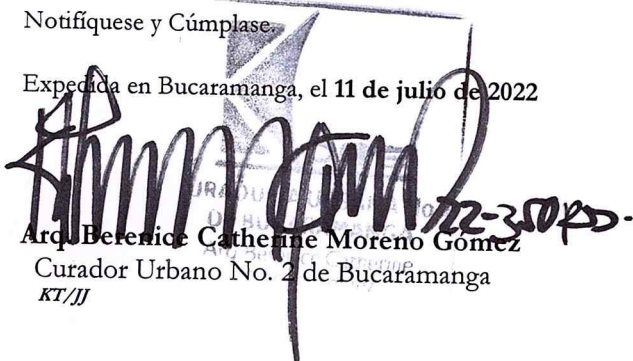 Notifíquese y Cúmplase.
Expedida en Bucaramanga, el 11 de julio de 2022
22-350
Arq. Berenice Catherine Moreno Gómez
Curador Urbano No. 2 de Bucaramanga
KT/JJ